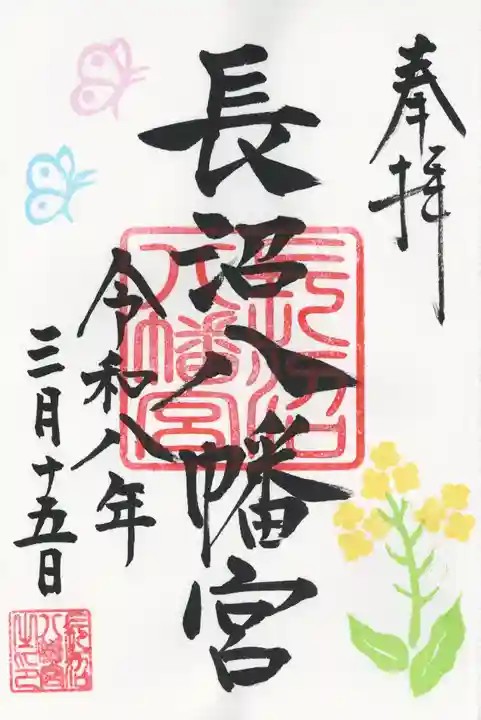 奉拝
長沼八幡宮
令和八年
三月十五日
長沼八幡宮